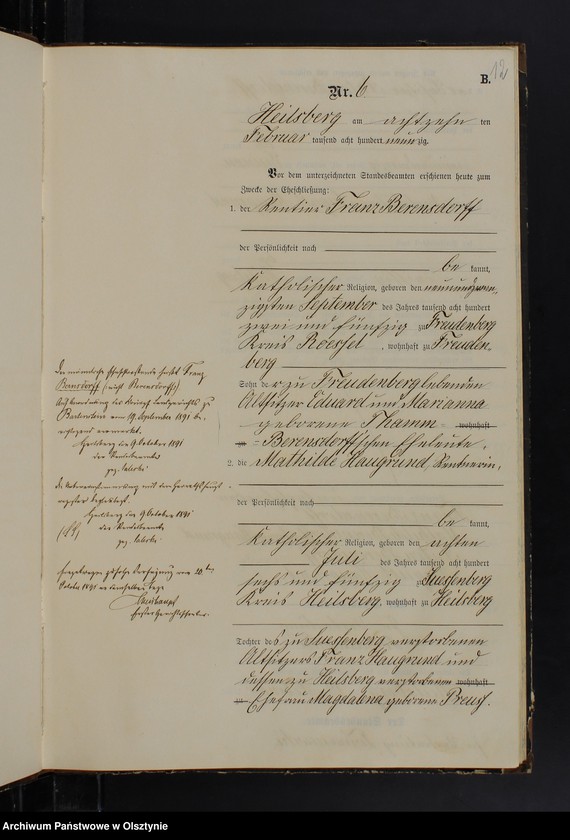 B.
12
Nr. 6
Heilsberg am achtzehn ten
Februar tausend acht hundert neunzig.
Vor dem unterzeichneten Standesbeamten erschienen heute zum
Zwecke der Eheschließung:
1. der Rentier Franz Berensdorff
der Persönlichkeit nach
be kannt,
Katholischer Religion, geboren den neunundzwan-
zigsten September des Jahres tausend acht hundert
zwei und fünfzig zu Freudenberg
Kreis Roessel, wohnhaft zu Freuden-
berg
Sohn der zu Freudenberg lebenden
Altsitzer Eduard und Marianna
geborene Thamm wohnhaft
Berensdorffschen Eheleute.
2. die Mathilde Haugrund, Rentnerin,
der Persönlichkeit nach
be kannt,
Katholischer Religion, geboren den achten
Juli des Jahres tausend acht hundert
sechs und fünfzig zu Suessenberg
Kreis Heilsberg, wohnhaft zu Heilsberg
Tochter des zu Suessenberg verstorbenen
Altsitzers Franz Haugrund und
dessen zu Heilsberg verstorbenen wohnhaft
Ehefrau Magdalena geborene Preuss.
Der männliche Eheschließende heißt Franz
Bernsdorff (nicht Berensdorff)
Auf Anordnung des Königl. Landgerichts zu
Bartenstein vom 19. September 1891
Heilsberg den 9. October 1891
der Standesbeamte
gez.
Die Uebereinstimmung mit dem Haupt
register beglaubigt.
Heilsberg den 9. October 1891
der Standesbeamte
gez.
Eingetragen zufolge Verfügung vom 10ten
October 1891 an demselben Tage
Archiwum Państwowe w Olsztynie